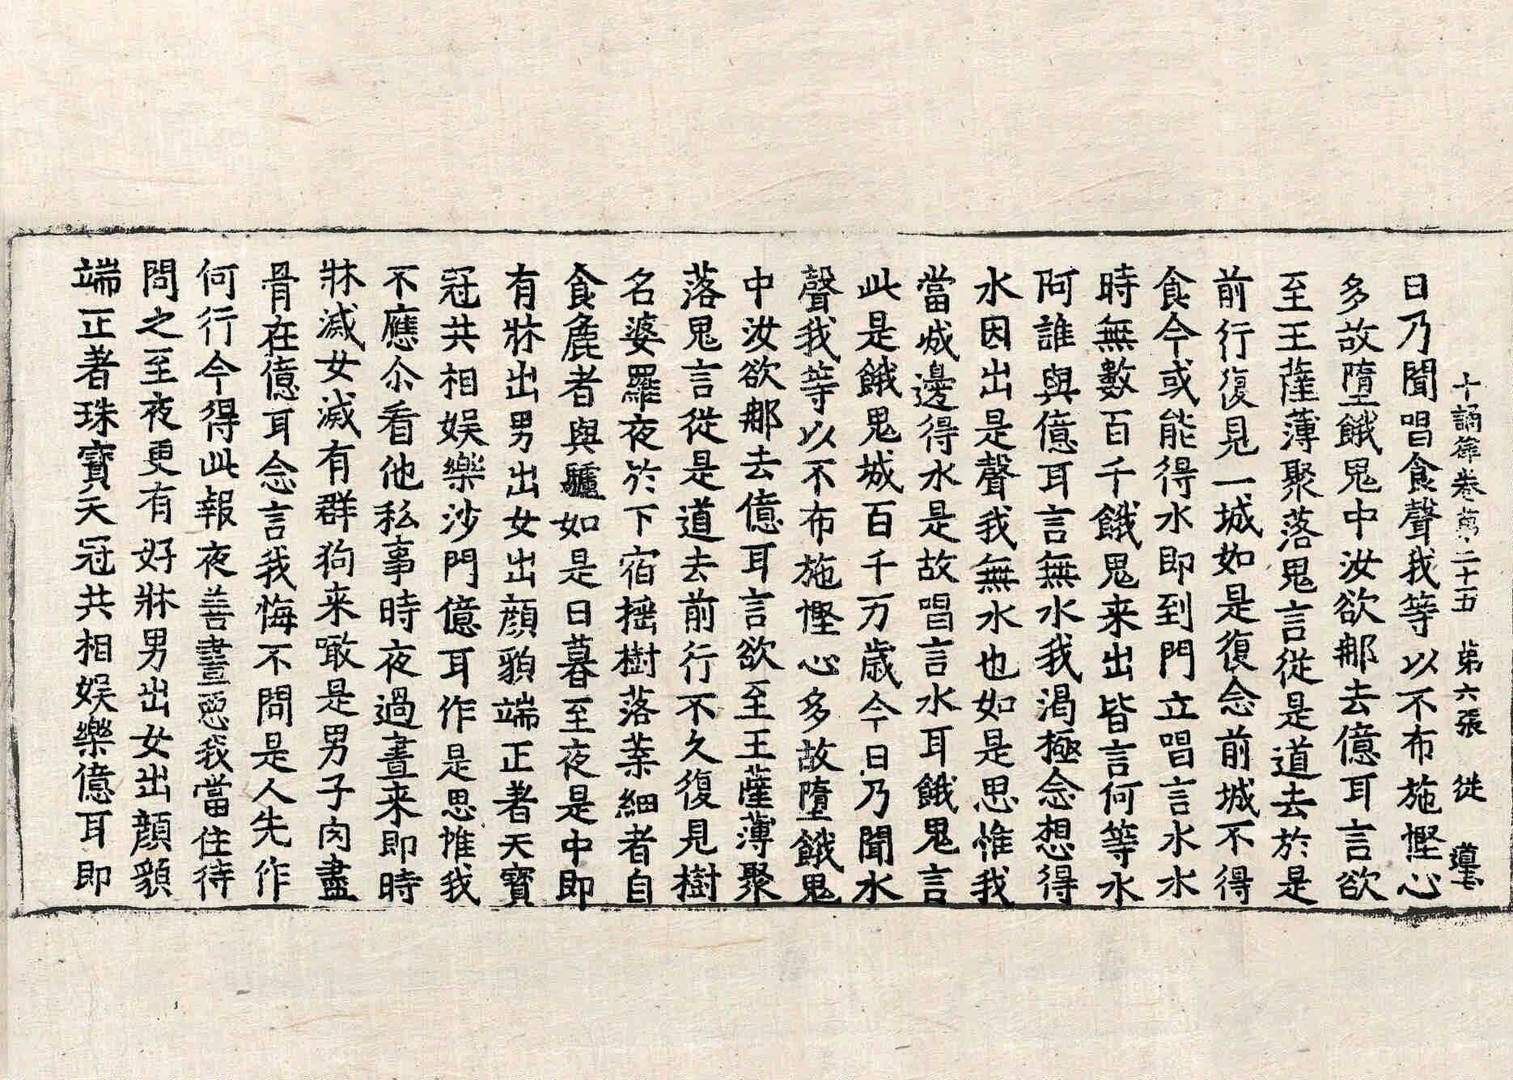 十誦律卷第二十五 第六張 従
日乃聞唱食聲我等以不布施慳心
多故墮餓鬼中汝欲那去億耳言欲
至王薩薄聚落鬼言従是道去於是
前行復見一城如是復念前城不得
食今或能得水即到門立唱言水水
時無數百千餓鬼来出皆言何等水
阿誰與億耳言無水我渴極念想得
水因出是聲我無水也如是思惟我
當城邊得水是故唱言水耳餓鬼言
此是餓鬼城百千万歳今日乃聞水
聲我等以不布施慳心多故墮餓鬼
中汝欲那去億耳言欲至王薩薄聚
落鬼言従是道去前行不久復見樹
名婆羅夜於下宿揺樹落葉細者自
食麁者與驢如是日暮至夜是中即
有牀出男出女出顔貌端正著天寶
冠共相娯樂沙門億耳作是思惟我
不應尒看他私事時夜過晝来即時
牀滅女滅有群狗来噉是男子肉盡
骨在億耳念言我悔不問是人先作
何行今得此報夜善晝惡我當住待
問之至夜更有好牀男出女出顔貌
端正著珠寶天冠共相娯樂億耳即